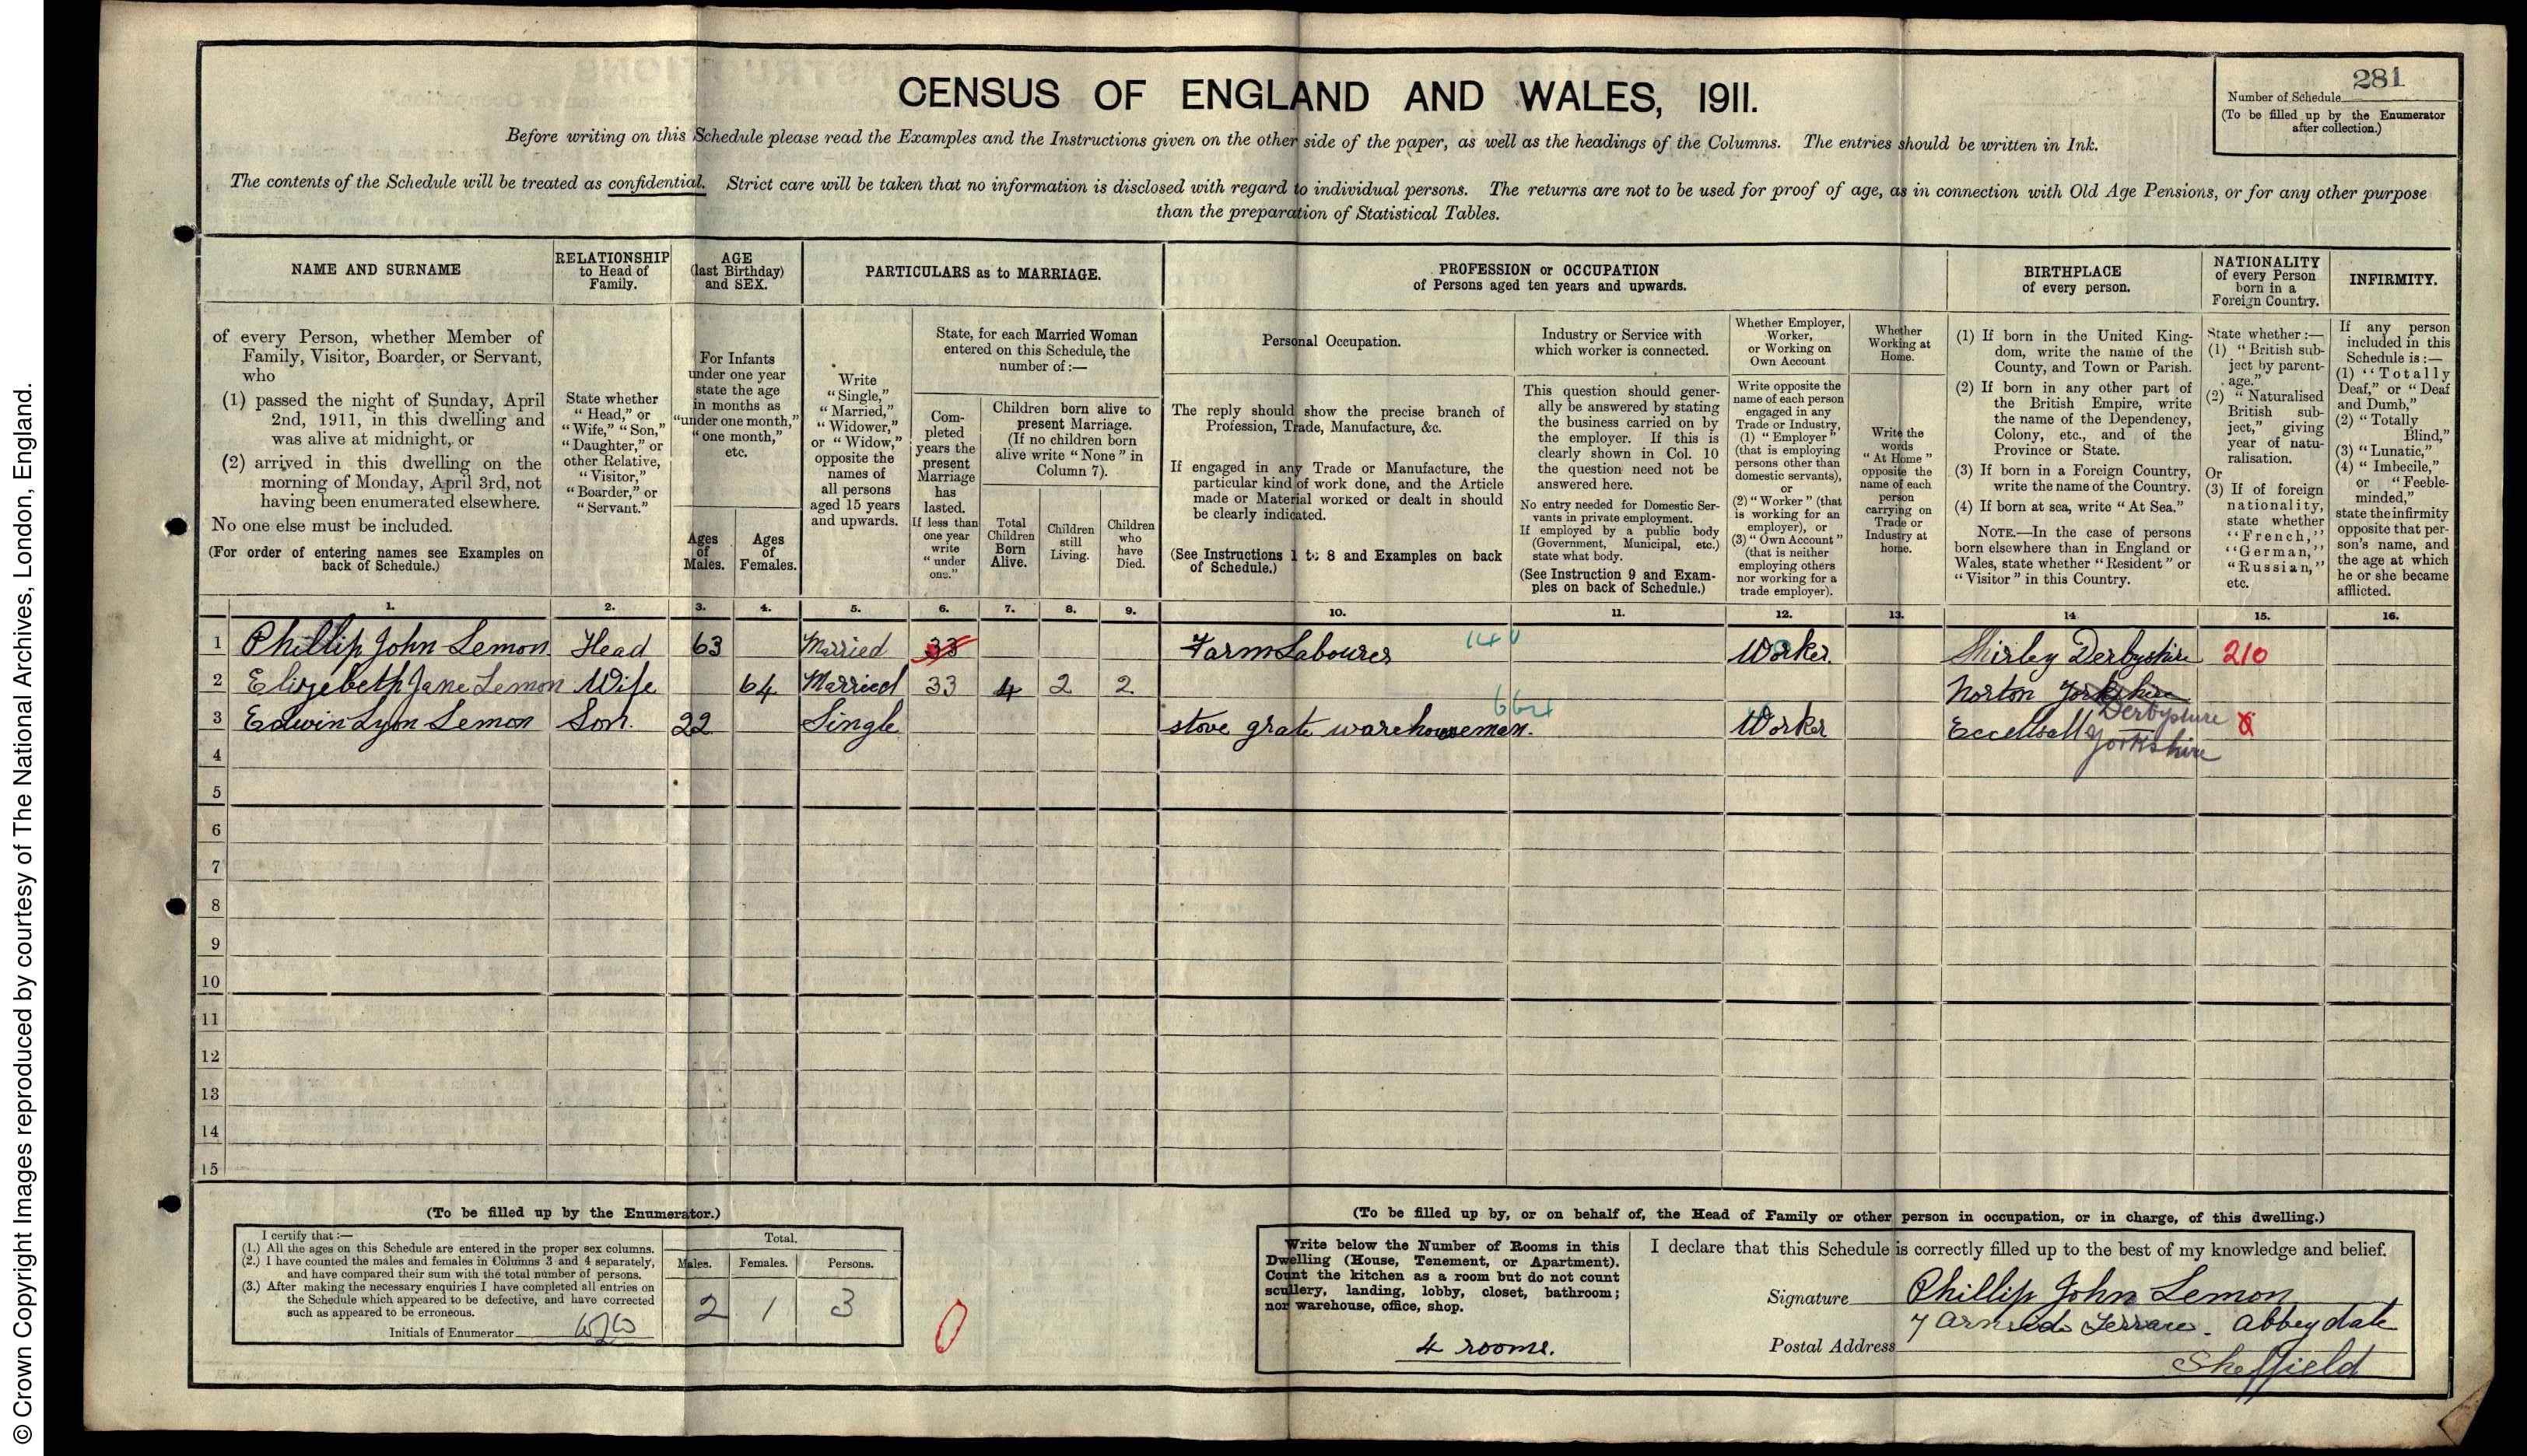 CENSUS OF ENGLAND AND WALES, 1911.
281
Number of Schedule
(To be filled up by the Enumerator
after collection.)
Before writing on this Schedule please read the Examples and the Instructions given on the other side of the paper, as well as the headings of the Columns. The entries should be written in Ink.
The contents of the Schedule will be treated as confidential. Strict care will be taken that no information is disclosed with regard to individual persons. The returns are not to be used for proof of age, as in connection with Old Age Pensions, or for any other purpose
than the preparation of Statistical Tables.
NAME AND SURNAME
of every Person, whether Member of
Family, Visitor, Boarder, or Servant,
who
(1) passed the night of Sunday, April
2nd, 1911, in this dwelling and
was alive at midnight, or
(2) arrived in this dwelling on the
morning of Monday, April 3rd, not
having been enumerated elsewhere.
No one else must be included.
(For order of entering names see Examples on
back of Schedule.)
RELATIONSHIP
to Head of
Family.
State whether
"Head," or
"Wife," "Son,"
"Daughter," or
other Relative,
"Visitor,"
"Boarder," or
"Servant."
AGE
(last Birthday)
and SEX.
For Infants
under one year
state the age
in months as
"under one month,"
"one month,"
etc.
Ages
of
Males.
Ages
of
Females.
PARTICULARS as to MARRIAGE.
Write
"Single,"
"Married,"
"Widower,"
or "Widow,"
opposite the
names of
all persons
aged 15 years
and upwards.
State, for each Married Woman
entered on this Schedule, the
number of:—
Com-
pleted
years the
present
Marriage
has
lasted.
If less than
one year
write
"under
one."
Children born alive to
present Marriage.
(If no children born
alive write "None" in
Column 7).
Total
Children
Born
Alive.
Children
still
Living.
Children
who
have
Died.
PROFESSION or OCCUPATION
of Persons aged ten years and upwards.
Personal Occupation.
The reply should show the precise branch of
Profession, Trade, Manufacture, &c.
If engaged in any Trade or Manufacture, the
particular kind of work done, and the Article
made or Material worked or dealt in should
be clearly indicated.
(See Instructions 1 to 8 and Examples on back
of Schedule.)
Industry or Service with
which worker is connected.
This question should gener-
ally be answered by stating
the business carried on by
the employer. If this is
clearly shown in Col. 10
the question need not be
answered here.
No entry needed for Domestic Ser-
vants in private employment.
If employed by a public body
(Government, Municipal, etc.)
state what body.
(See Instruction 9 and Exam-
ples on back of Schedule.)
Whether Employer,
Worker,
or Working on
Own Account.
Write opposite the
name of each person
engaged in any
Trade or Industry,
(1) "Employer"
(that is employing
persons other than
domestic servants),
or
(2) "Worker" (that
is working for an
employer), or
(3) "Own Account"
(that is neither
employing others
nor working for a
trade employer).
Whether
Working at
Home.
Write the
words
"At Home"
opposite the
name of each
person
carrying on
Trade or
Industry at
home.
BIRTHPLACE
of every person.
(1) If born in the United King-
dom, write the name of the
County, and Town or Parish.
(2) If born in any other part of
the British Empire, write
the name of the Dependency,
Colony, etc., and of the
Province or State.
(3) If born in a Foreign Country,
write the name of the Country.
(4) If born at sea, write "At Sea."
NOTE.—In the case of persons
born elsewhere than in England or
Wales, state whether "Resident" or
"Visitor" in this Country.
NATIONALITY
of every Person
born in a
Foreign Country.
State whether:—
(1) "British sub-
ject by parent-
age."
(2) "Naturalised
British sub-
ject," giving
year of natu-
ralisation.
Or
(3) If of foreign
nationality,
state whether
"French,"
"German,"
"Russian,"
etc.
INFIRMITY.
If any person
included in this
Schedule is:—
(1) "Totally
Deaf," or "Deaf
and Dumb,"
(2) "Totally
Blind,"
(3) "Lunatic,"
(4) "Imbecile,"
or "Feeble-
minded,"
state the infirmity
opposite that per-
son's name, and
the age at which
he or she became
afflicted.
1. 2. 3. 4. 5. 6. 7. 8. 9. 10. 11. 12. 13. 14 15. 16.
1 Phillip John Lemon Head 63 Married 33 Farm Labourer 140 Worker. Shirley Derbyshire 210
2 Elizebeth Jane Lemon Wife 64 Married 33 4 2 2 Norton Yorkshire
Derbyshire
3 Edwin Lyon Lemon Son. 22 Single stove grate warehouseman. 664 Worker Eccellsall
Yorkshire
4
5
6
7
8
9
10
11
12
13
14
15
(To be filled up by the Enumerator.)
I certify that:—
(1.) All the ages on this Schedule are entered in the proper sex columns.
(2.) I have counted the males and females in Columns 3 and 4 separately,
and have compared their sum with the total number of persons.
(3.) After making the necessary enquiries I have completed all entries on
the Schedule which appeared to be defective, and have corrected
such as appeared to be erroneous.
Initials of Enumerator
Total.
Males. Females. Persons.
2 1 3
0
(To be filled up by, or on behalf of, the Head of Family or other person in occupation, or in charge, of this dwelling.)
Write below the Number of Rooms in this
Dwelling (House, Tenement, or Apartment).
Count the kitchen as a room but do not count
scullery, landing, lobby, closet, bathroom;
nor warehouse, office, shop.
4 rooms.
I declare that this Schedule is correctly filled up to the best of my knowledge and belief.
Signature Phillip John Lemon
Postal Address 7 Terrace. Abbeydale
Sheffield
© Crown Copyright Images reproduced by courtesy of The National Archives, London, England.